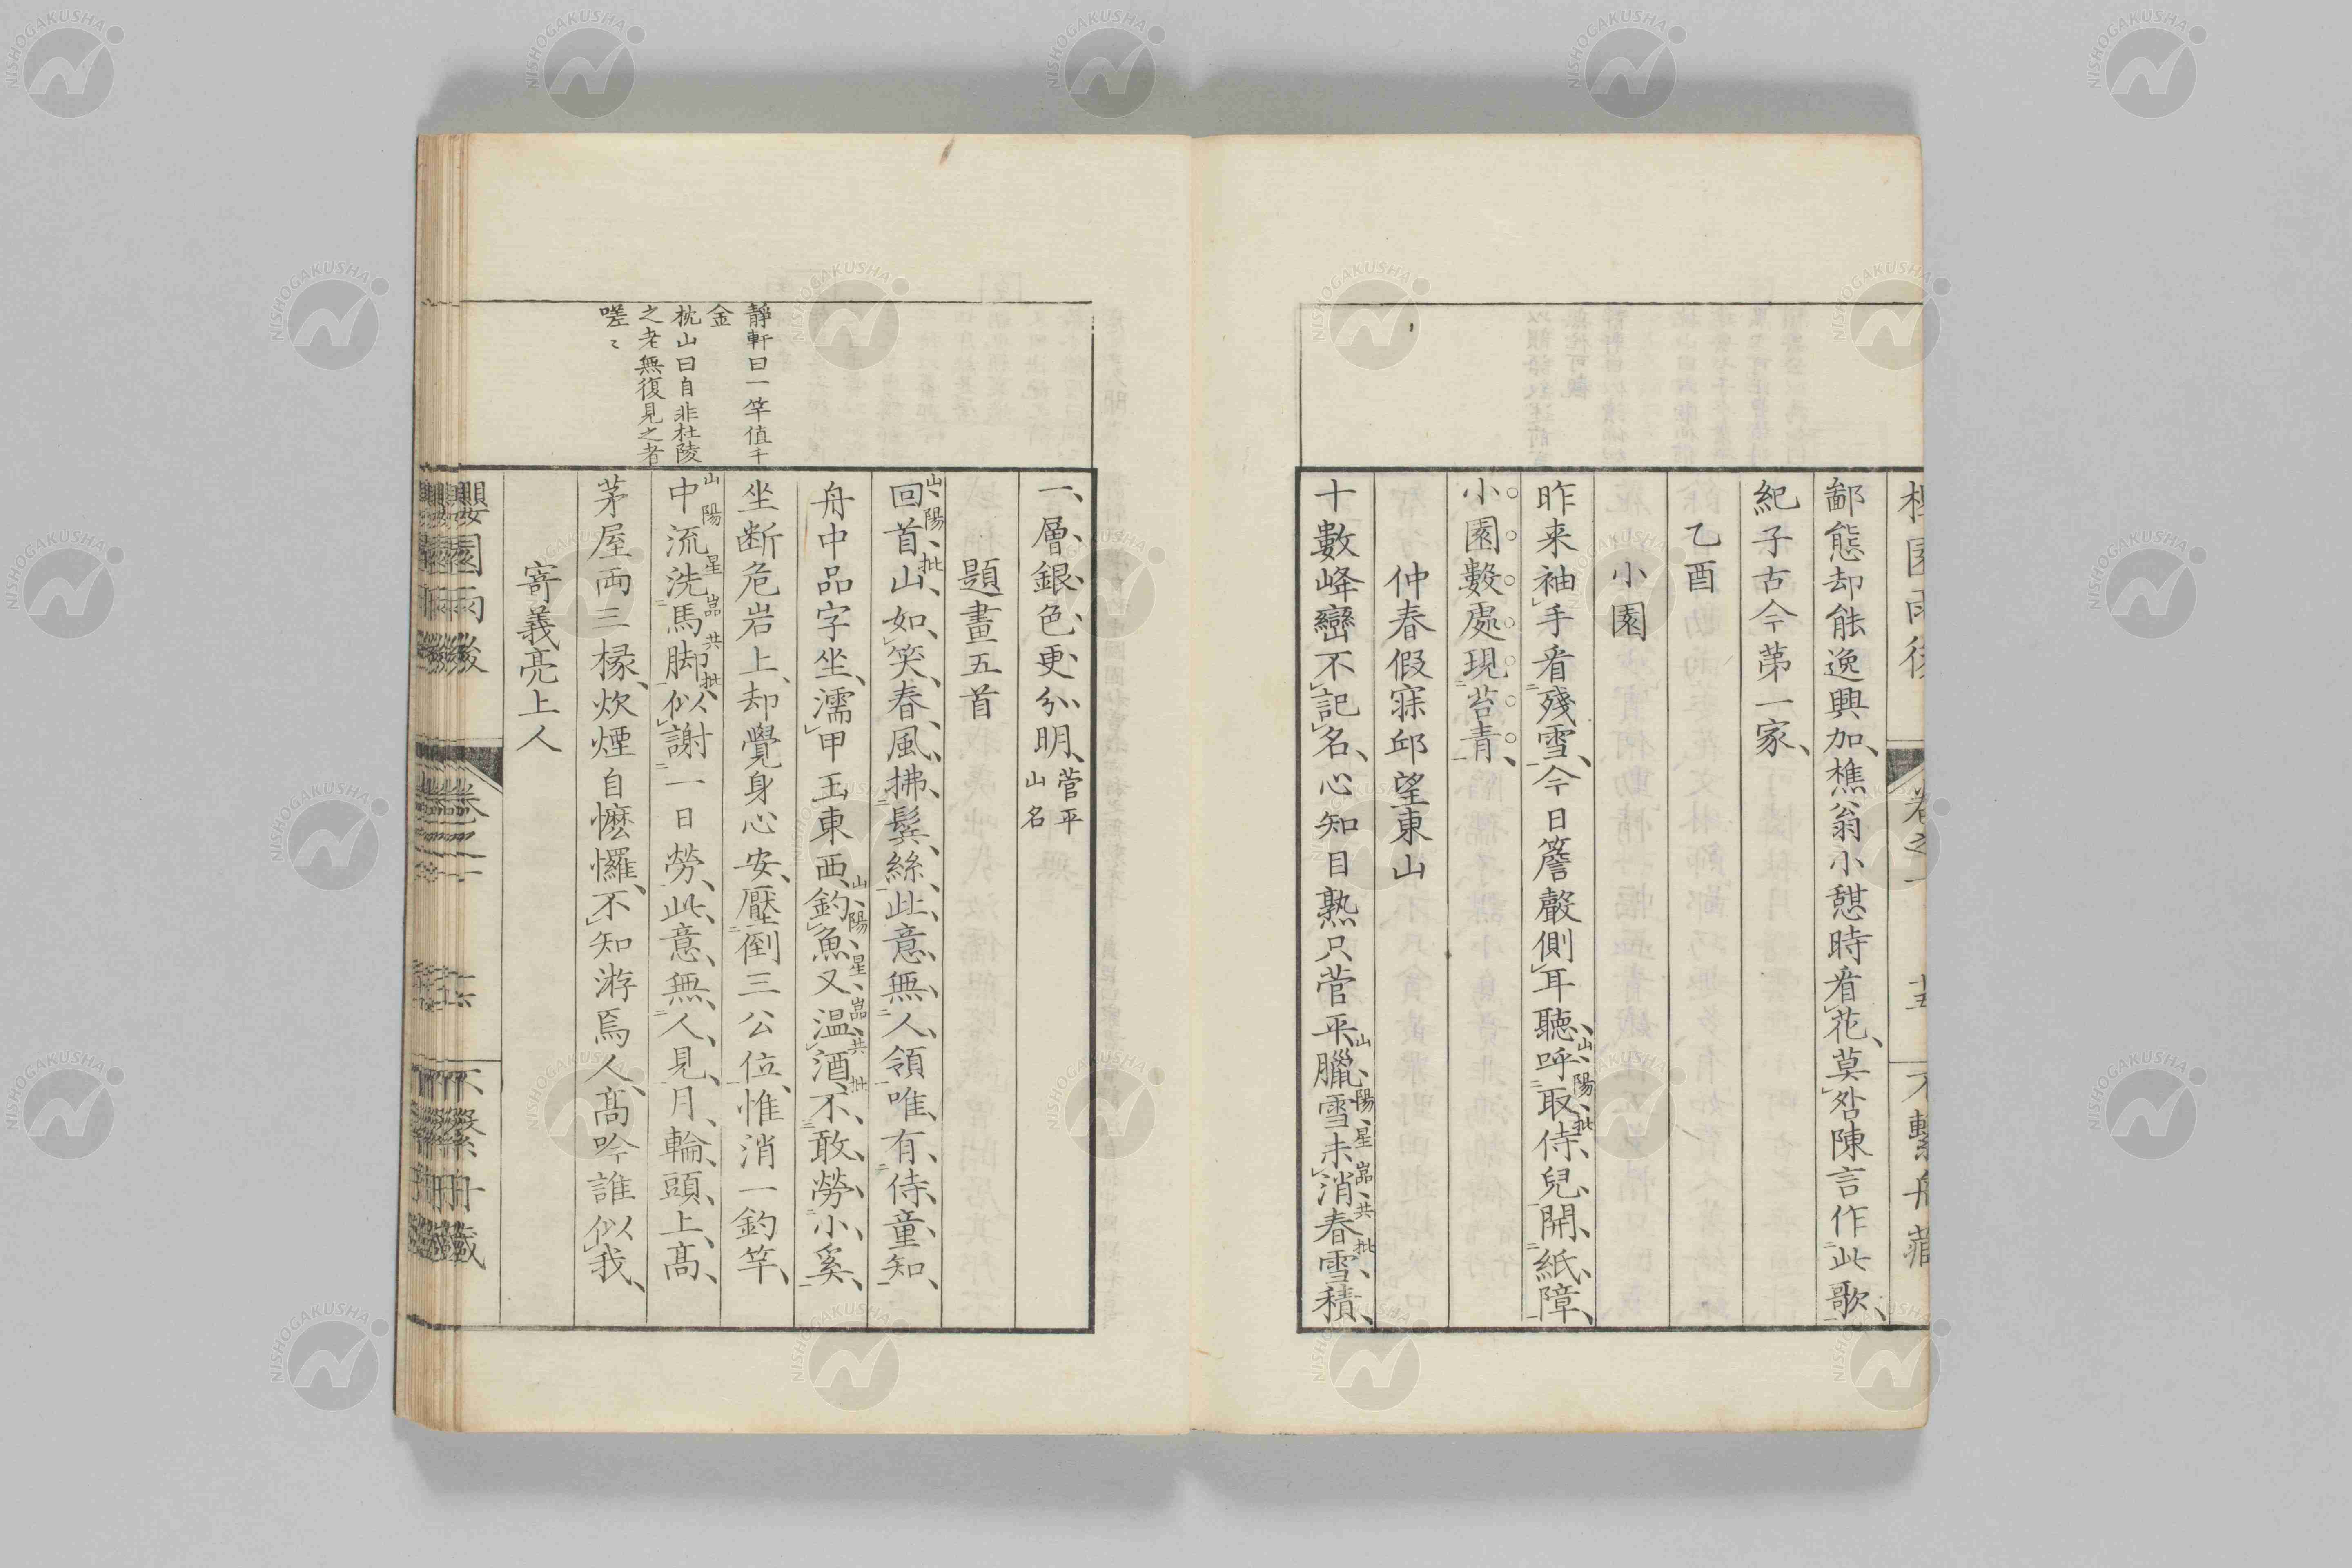 鄙態却能逸興加樵翁小憩時看花莫咎陳言作此歌
紀子古今第一家
乙酉
小園
昨来袖手看殘雪今日簷聲側耳聽呼取侍兒開紙障
山陽批
小園數處現苔青
仲春假寐邱望東山
十數峰巒不記名心知目熟只菅平臘雪未消春雪積
山陽星巖共批
卷之一
十五
不繫舟藏
一層銀色更分明
菅平
山名
題畫五首
回首山如笑春風拂鬓絲此意無人領唯有侍童知
山陽批
舟中品字坐濡甲玉東西釣魚又温酒不敢勞小奚
山陽星巖共批
坐断危岩上却覺身心安壓倒三公位惟消一釣竿
中流洗馬脚似謝一日勞此意無人見月輪頭上高
山陽星巖共批
茅屋両三椽炊煙自㦄㦬不知游焉人高吟誰似我
寄義亮上人
靜軒曰一竿值千
金
枕山曰自非杜陵
之老無復見之者
嗟〻
園雨後
卷之一
不繫舟藏
NISHOGAKUSHA